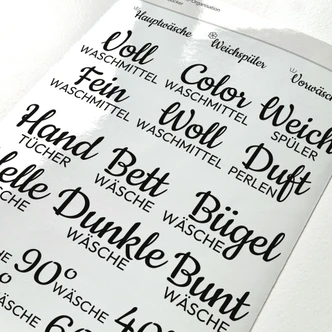 Organisation
Hauptwäsche
Weichspüler
Vorwäsche
Voll
WASCHMITTEL
Color
WASCHMITTEL
Weich
SPÜLER
Fein
WASCHMITTEL
Woll
WASCHMITTEL
Duft
PERLEN
Hand
TÜCHER
Bett
WÄSCHE
Bügel
WÄSCHE
elle
SCHE
Dunkle
WÄSCHE
Bunt
WÄSCHE
90°
WÄSCHE
40°
60